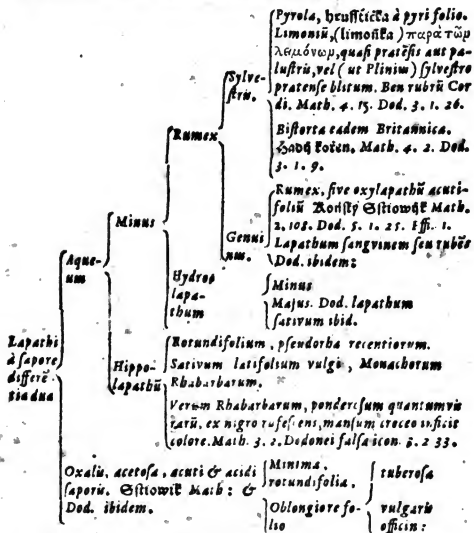 Pyrola, hrussstička à pyri folio.
Limoniũ, (limoňka) παρὰ τῶμ
λεμόνωμ, quasi pratẽsis aut pa-
lustris, vel ( ut Plinius) sylvestro
pratense blitum. Ben rubrũ Cor
di. Math. 4. 15. Dod. 3. 1. 26.
Sylve-
stris.
Bistorta eadem Britannica.
Hadij kořen. Math. 4. 2. Dod.
3. 1. 9.
Rumex
Rumex, sive oxylapathũ acuti-
foliũ Koňský Sstiowjk Math.
2. 108. Dod. 5. 1. 25. Ess. 1.
Minus
Genui
nus.
Lapathum sanguinem seu rubẽs
Dod. ibidem:
Aque-
um
Hydros
lapa-
thum
Minus
Majus. Dod. lapathum
sativum ibid.
Lapathi
à sapore
differẽ-
tia dua
Hippo-
lapathũ
Rotundifolium, pseudorha recentiorum.
Sativum latifolium vulgi, Monachorum
Rhabarbarum.
Verum Rhabarbarum, ponderosum quantumvis
rarũ, ex nigro rufescens, mansum croceo inficit
colore. Math. 3. 2. Dodonei falsa icon. 3. 2 33.
Oxalis, acetosa, acuti & acidi
saporis. Sstiowik Math: &
Dod. ibidem.
Minima,
rotundifolia.
Oblongiore fo-
lio
tuberosa
vulgaris
officin: